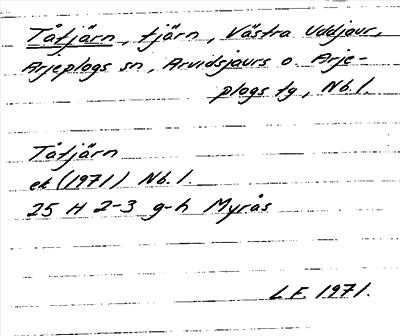 Tåtjärn, tjärn, Västra Uddjaur,
Arjeplogs sn, Arvidsjaurs o. Arje-
plogs tg, Nb. l.
Tåtjärn
ek (1971) Nb. l.
25 H 2-3 g-h Myrås
L.F. 1971.